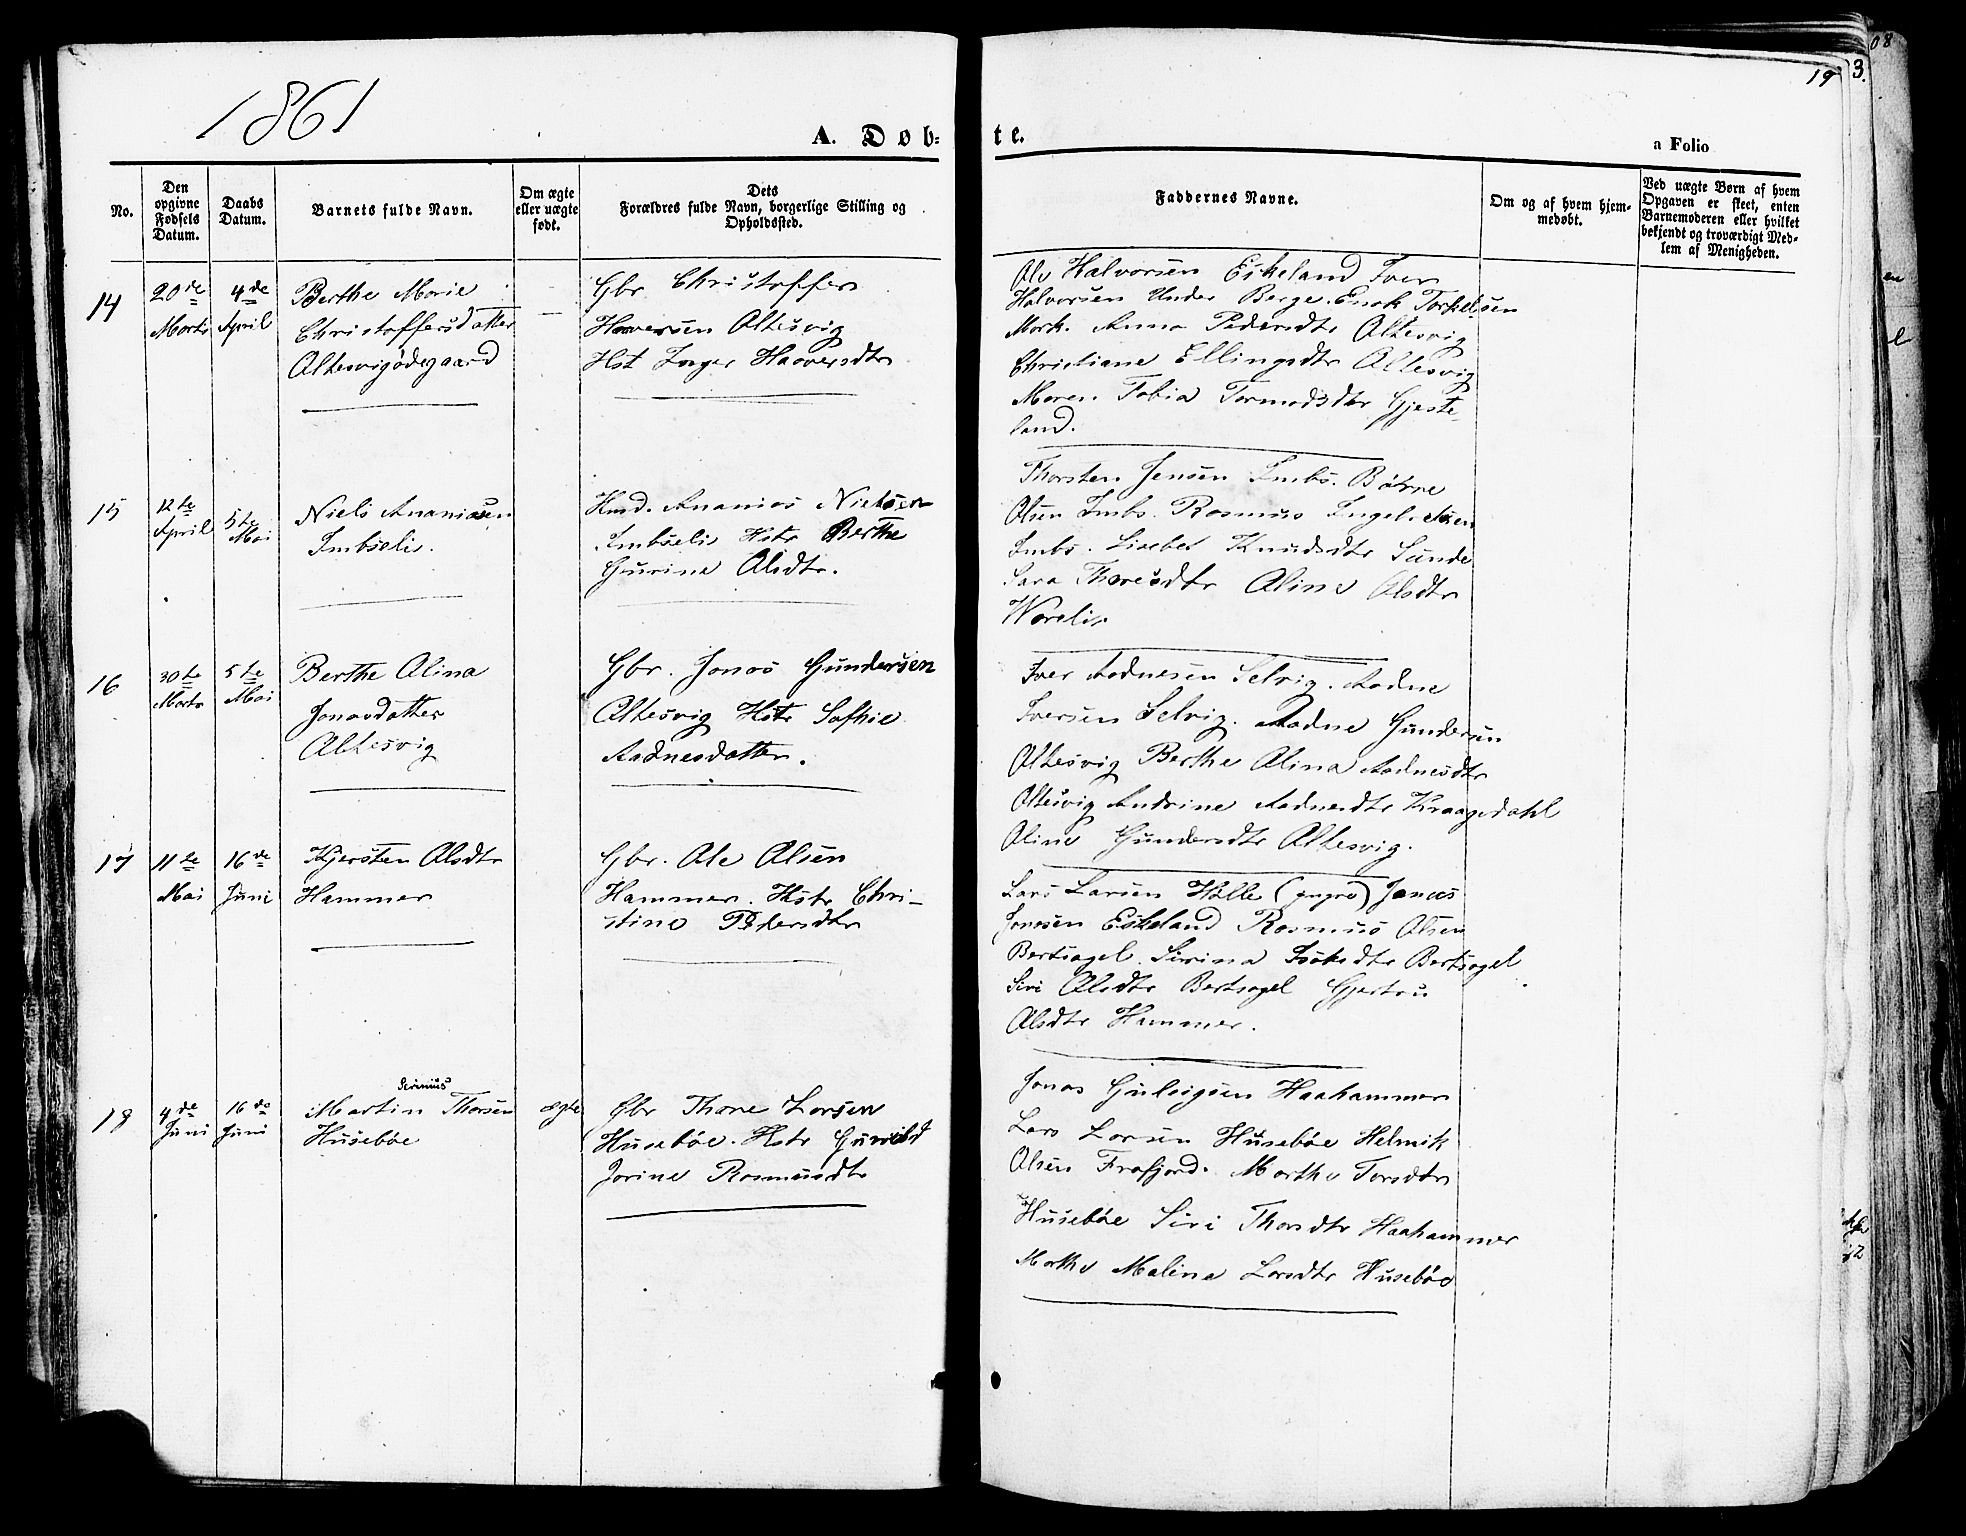 1861
A. Døb=
te.
a Folio
19
3.
08
No.
Den opgivne Fødsels Datum.
Daabs Datum.
Barnets fulde Navn.
Om ægte eller uægte født.
Dets Forældres fulde Navn, borgerlige Stilling og Opholdssted.
Faddernes Navne.
Om og af hvem hjem-
medøbt.
Ved uægte Børn af hvem
Opgaven er skeet, enten
Barnemoderen eller hvilket
bekjendt og troværdigt Med-
lem af Menigheden.
14
20de
Marts
4de
April
Berthe Marie
Christoffersdatter
Altesvigødegaard
Gbr. Christoffer
Haaversen Altesvig
Hst Inger Haaversdtr
Ole Halvorsen Eskeland Iver
Halvorsen Under Berge. Enok Torkelsen
Mork. Anna Pedersdtr Altesvig
Christiane Ellingsdtr Altesvig
Maren Tobia Tormodsdtr Gjeste-
land.
15
12te
April
5te
Mai
Niels Ananiasen
Imbselis.
Hmd. Ananias Nielsen
Imbselis Hstr Berthe
Gurine Olsdtr.
Thorsten Jensen Imbs. Børre
Olsen Imbs. Rasmus Ingel. Sven
Imbs. Lisebet Knudsdtr Sunde
Sara Thoresdtr Oline Olsdtr
Worelis
16
30te
Marts
5te
Mai
Berthe Olina
Jonasdatter
Altesvig
Gbr. Jonas Gundersen
Altesvig Hstr Sofhie
Aadnesdatter.
Iver Aadnesen Selvig. Aadne
Iversen Selvig. Aadne Gundersen
Altesvig Berthe Olina Aadnesdtr
Altesvig Andrine Aadnesdtr Kraagedahl
Oline Gundersdtr Altesvig.
17
11te
Mai
16de
Juni
Kjersten Olsdtr
Hammer
Gbr. Ole Olsen
Hammer. Hstr Chri-
stine Pedersdtr
Lars Larsen Hølle (yngre) Jonas
Jonasen Eskeland Rasmus Olsen
Bertsagel. Sirina Isaksdtr Bertsagel
Siri Olsdtr Bertsagel Gjertru
Olsdtr Hammer.
18
4de
Juni
16de
Juni
Serinius
Martin Thorsen
Husebøe
ægte
Gbr Thore Larsen
Husebøe. Hstr Gunild
Jorine Rasmusdtr
Jonas Gulvigsen Haahammer
Lars Larsen Husebøe Helmik
Olsen Frafjord. Marthe Torsdtr
Husebøe Siri Thorsdtr Haahammer
Marthe Malina Larsdtr Husebøe